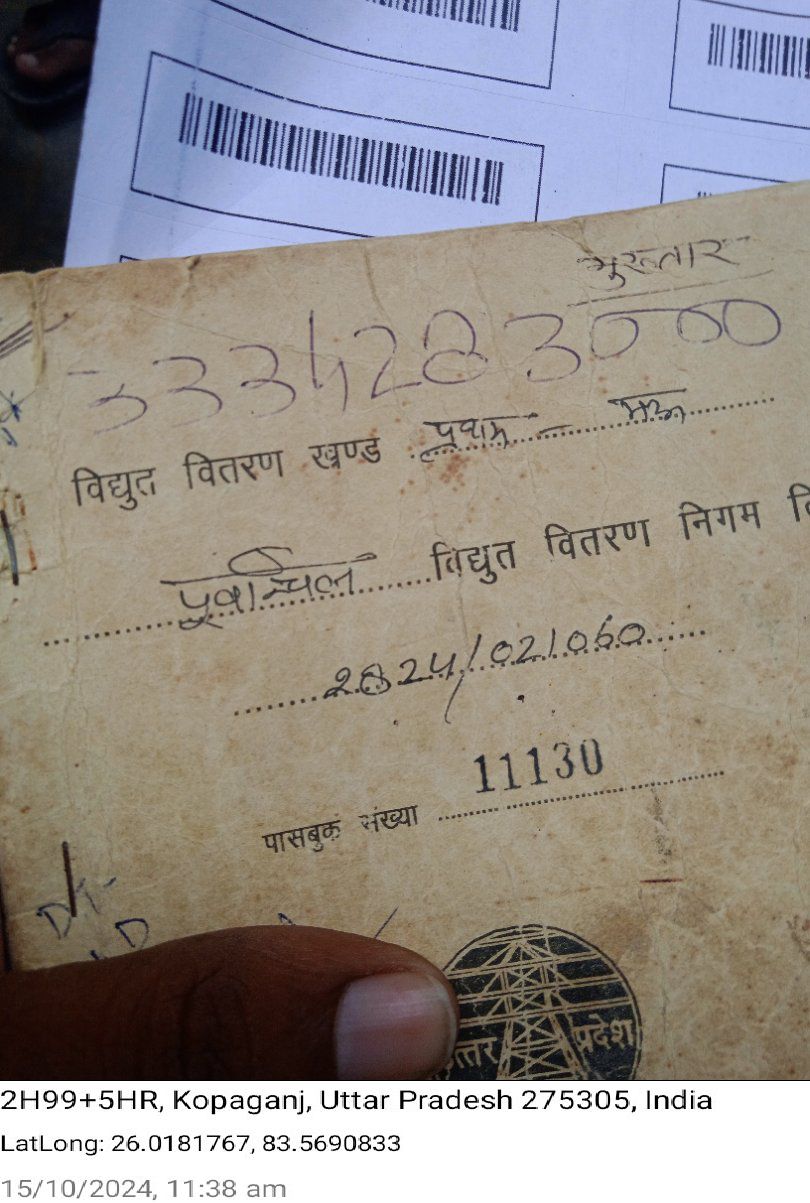 मुख्तार
3334283000
विद्युत वितरण खण्ड प्रथम - मऊ
पूर्वान्चल विद्युत वितरण निगम लि
2824/021060
पासबुक संख्या 11130
उत्तर प्रदेश
2H99+5HR, Kopaganj, Uttar Pradesh 275305, India
LatLong: 26.0181767, 83.5690833
15/10/2024, 11:38 am